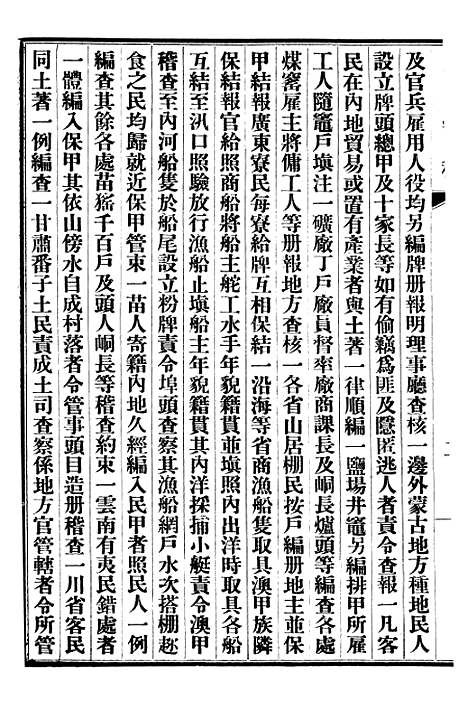 及官兵雇用人役均另編牌册報明理事廳查核一邊外蒙古地方種地民人
設立牌頭總甲及十家長等如有偷竊爲匪及隱匿逃人者責令查報一凡客
民在內地貿易或置有產業者與土著一律順編一鹽場井竈另編排甲所雇
工人隨竈戶塡注一礦廠丁戶廠員督率廠商課長及峒長爐頭等編查各處
煤窰雇主將傭工人等册報地方查核一各省山居棚民按戶編册地主並保
甲結報廣東寮民每寮給牌互相保結一沿海等省商漁船隻取具澳甲族隣
保結報官給照商船將船主舵工水手年貌籍貫並塡照內出洋時取具各船
互結至汛口照驗放行漁船止塡船主年貌籍貫其內洋採捕小艇責令澳甲
稽查至內河船隻於船尾設立粉牌責令埠頭查察其漁船網戶水次搭棚趂
食之民均歸就近保甲管束一苗人寄籍內地久經編入民甲者照民人一例
編查其餘各處苗猺千百戶及頭人峒長等稽查約束一雲南有夷民錯處者
一體編入保甲其依山傍水自成村落者令管事頭目造册稽查一川省客民
同土著一例編查一甘肅番子土民責成土司查察係地方官管轄者令所管